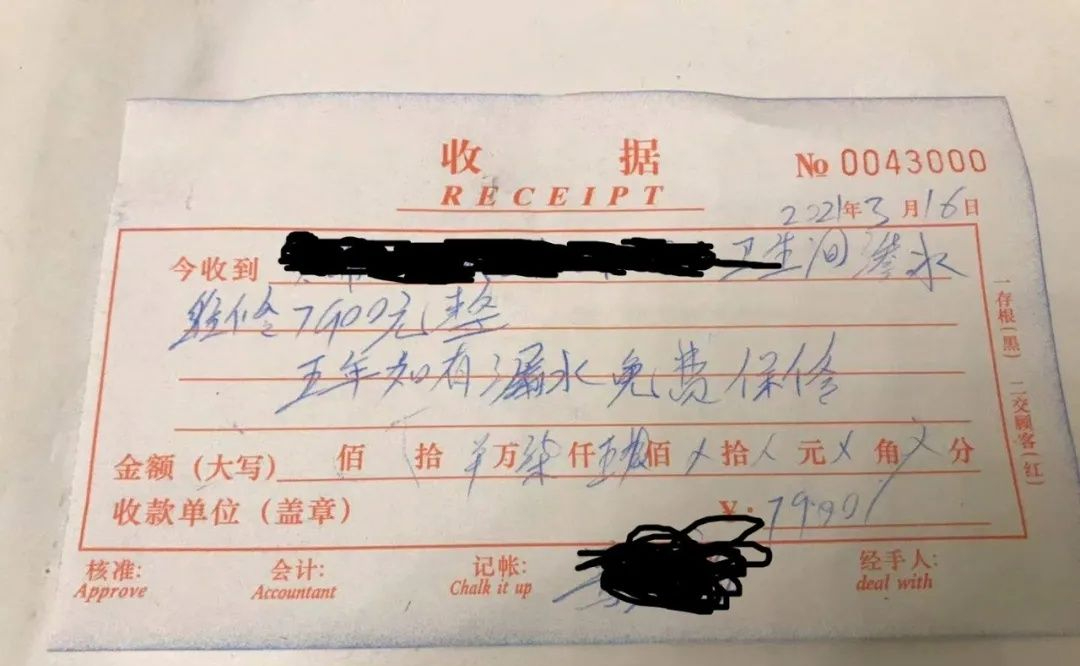 收 据
RECEIPT
No 0043000
2021年3月16日
今收到 卫生间渗水
维修7900元整
五年如有漏水免费保修
金额(大写) 佰 拾 万柒仟 佰 拾 元 角 分
收款单位(盖章) ¥:7900/
核准: 会计: 记帐: 经手人:
Approve Accountant Chalk it up deal with
一存根(黑) 二交顾客(红)